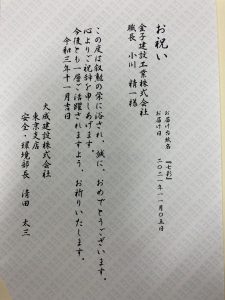 お祝い
お届け台紙名 『七彩』
お届け日 二〇二一年一一月〇五日
金子建設工業株式会社
職長 小川 精一様
この度は叙勲の栄に浴され、誠に、おめでとうございます。
心よりご祝辞を申しあげます。
今後とも一層ご活躍されますよう、お祈りいたします。
令和三年十一月吉日
大成建設株式会社
東京支店
安全・環境部長 清田 大三